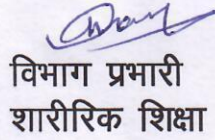 विभाग प्रभारी
शारीरिक शिक्षा